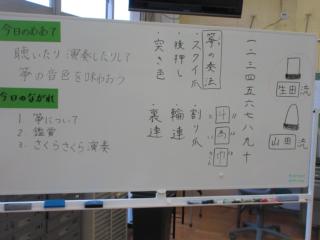 今日のめあて
聴いたり演奏したりして
箏の音色を味わおう
今日のながれ
1. 箏について
2. 鑑賞
3. さくらさくら演奏
箏の奏法
・スクイ爪
・後押し
・突き色
・割り爪
・輪連
・裏連
一二三四五六七八九十
斗
為
巾
生田流
山田流